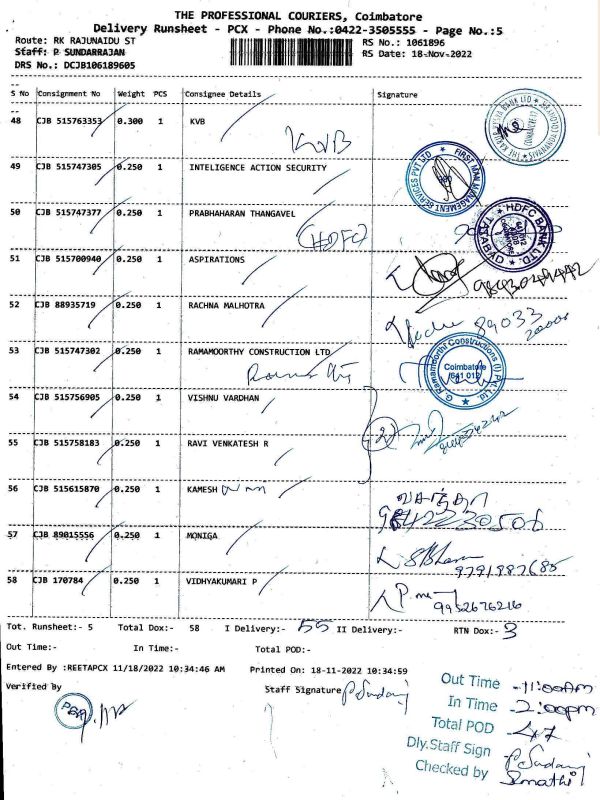 THE PROFESSIONAL COURIERS, Coimbatore
Delivery Runsheet - PCX - Phone No.:0422-3505555 - Page No.:5
Route: RK RAJUNAIDU ST
RS No.: 1061896
Staff: P SUNDARRAJAN
RS Date: 18-Nov-2022
DRS No.: DCJB106189605
S No Consignment No Weight PCS Consignee Details Signature
48 CJB 515763353 0.300 1 KVB
KVB
49 CJB 515747305 0.250 1 INTELIGENCE ACTION SECURITY
FIRST MAN MANAGEMENT SERVICES PVT LTD
50 CJB 515747377 0.250 1 PRABHAHARAN THANGAVEL
(HDFC)
HDFC BANK LTD.
51 CJB 515700940 0.250 1 ASPIRATIONS
52 CJB 88935719 0.250 1 RACHNA MALHOTRA
89033
53 CJB 515747302 0.250 1 RAMAMOORTHY CONSTRUCTION LTD
G. Ramamoorthi Constructions (I) Pvt. Ltd.
Coimbatore
641 012
54 CJB 515756905 0.250 1 VISHNU VARDHAN
2
55 CJB 515758183 0.250 1 RAVI VENKATESH R
56 CJB 515615870 0.250 1 KAMESH
9842230506
57 CJB 89015556 0.250 1 MONIGA
9791987685
58 CJB 170784 0.250 1 VIDHYAKUMARI P
9952676216
Tot. Runsheet:- 5 Total Dox:- 58 I Delivery:- 55 II Delivery:- RTN Dox:- 3
Out Time:- In Time:- Total POD:-
Entered By :REETAPCX 11/18/2022 10:34:46 AM Printed On: 18-11-2022 10:34:59
Verified By Staff Signature
Out Time - 11:00AM
In Time - 2:00pm
Total POD - 47
Dly.Staff Sign
Checked by